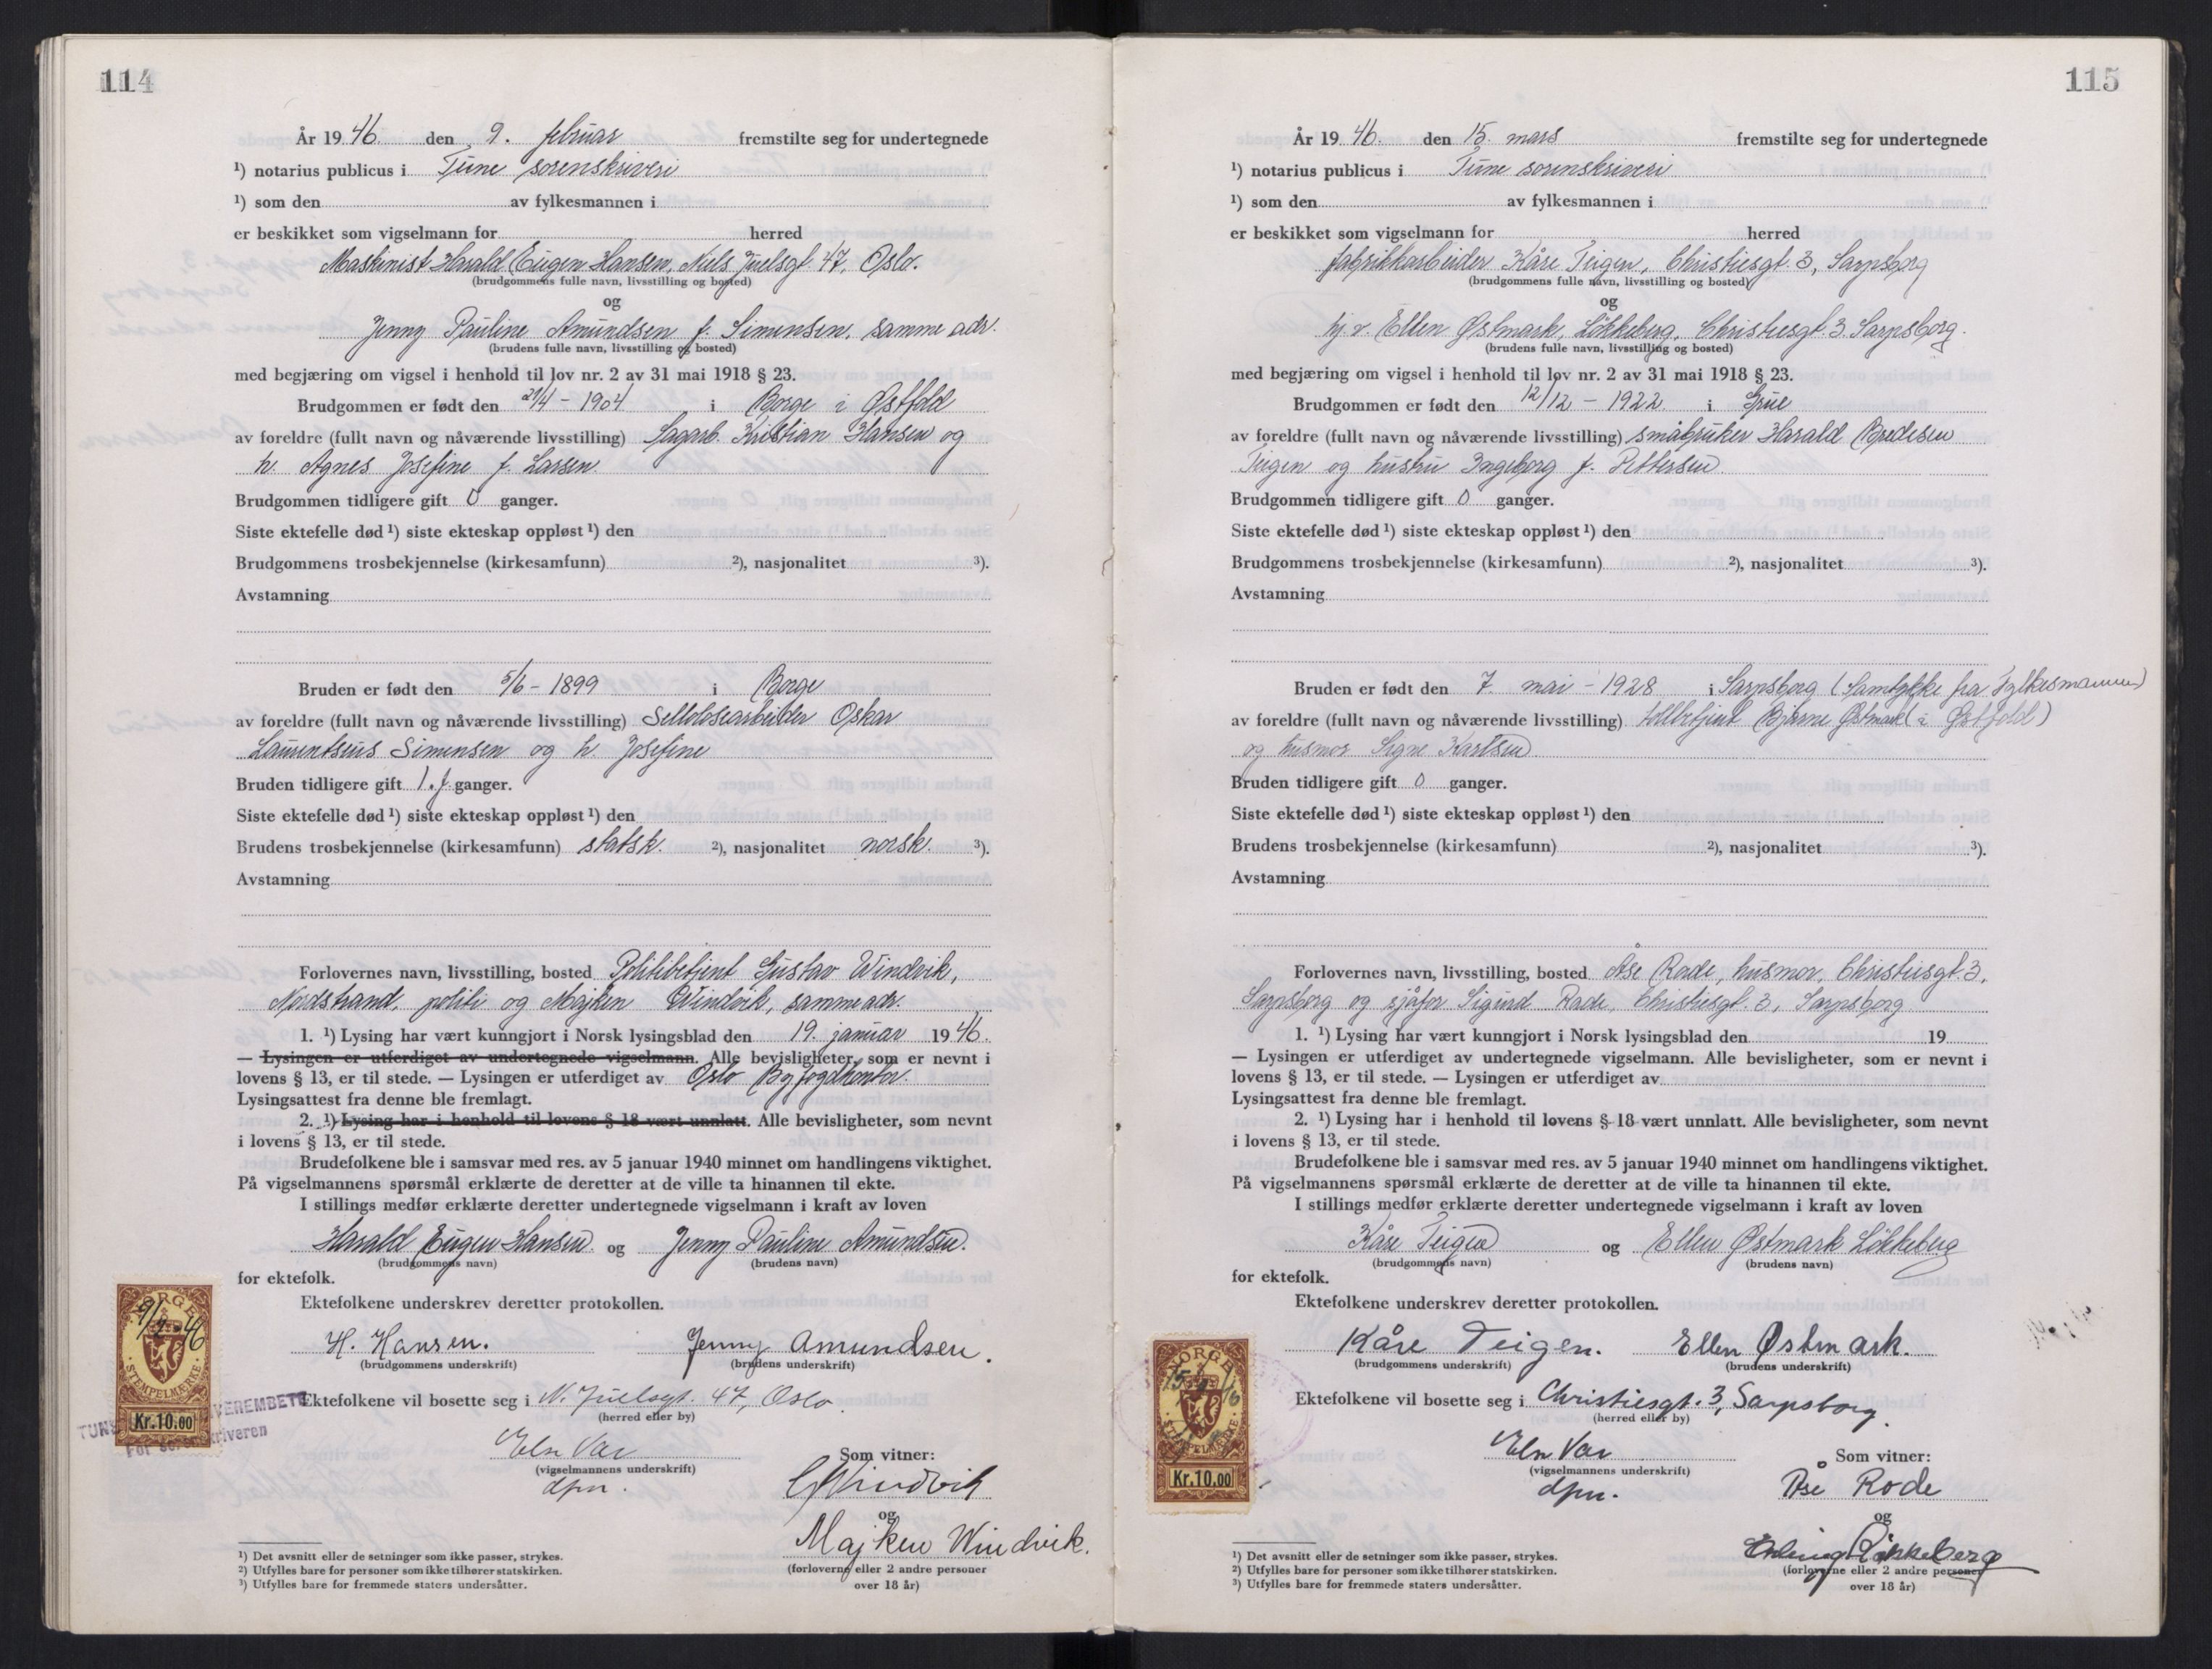 114
År 1946. den 9. februar fremstilte seg for undertegnede
¹) notarius publicus i Tune sorenskriveri
¹) som den av fylkesmannen i
er beskikket som vigselmann for herred
Maskinist Harald Eugen Hansen, Niels Juelsgt. 47, Oslo.
(brudgommens fulle navn, livsstilling og bosted)
og
Jenny Pauline Amundsen f. Simensen, samme adr.
(brudens fulle navn, livsstilling og bosted)
med begjæring om vigsel i henhold til lov nr. 2 av 31 mai 1918 § 23.
Brudgommen er født den 29/4 - 1904 i Borge i Østfold
av foreldre (fullt navn og nåværende livsstilling) Sagarb. Kristian Hansen og
h. Agnes Josefine f. Larsen
Brudgommen tidligere gift 0 ganger.
Siste ektefelle død ¹) siste ekteskap oppløst ¹) den
Brudgommens trosbekjennelse (kirkesamfunn) ²), nasjonalitet ³).
Avstamning
Bruden er født den 5/6 - 1899 i Borge
av foreldre (fullt navn og nåværende livsstilling) Sellulosearbeider Oskar
Laurentsius Simensen og h. Josefine
Bruden tidligere gift 1. f. ganger.
Siste ektefelle død ¹) siste ekteskap oppløst ¹) den
Brudens trosbekjennelse (kirkesamfunn) statsk. ²), nasjonalitet norsk. ³).
Avstamning
Forlovernes navn, livsstilling, bosted Politibetjent Gustav Windvik,
Nordstrand, politi og Majken Windvik, samme adr.
1. ¹) Lysing har vært kunngjort i Norsk lysingsblad den 19. januar 1946.
— Lysingen er utferdiget av undertegnede vigselmann. Alle bevisligheter, som er nevnt i
lovens § 13, er til stede. — Lysingen er utferdiget av Oslo Byfogdkontor.
Lysingsattest fra denne ble fremlagt.
2. ¹) Lysing har i henhold til lovens § 18 vært unnlatt. Alle bevisligheter, som nevnt
i lovens § 13, er til stede.
Brudefolkene ble i samsvar med res. av 5 januar 1940 minnet om handlingens viktighet.
På vigselmannens spørsmål erklærte de deretter at de ville ta hinannen til ekte.
I stillings medfør erklærte deretter undertegnede vigselmann i kraft av loven
Harald Eugen Hansen og Jenny Pauline Amundsen.
(brudgommens navn) (brudens navn)
for ektefolk.
Ektefolkene underskrev deretter protokollen.
H. Hansen. Jenny Amundsen.
(brudgommens underskrift) (brudens underskrift)
Ektefolkene vil bosette seg i N. Juelsgt. 47, Oslo.
(herred eller by)
NORGE
9/2-46
STEMPELMERKE
Kr.10.00
(vigselmannens underskrift)
dfm.
Som vitner:
GWindvik
og
Majken Windvik.
(forloverne eller 2 andre personer
over 18 år)
¹) Det avsnitt eller de setninger som ikke passer, strykes.
²) Utfylles bare for personer som ikke tilhører statskirken.
³) Utfylles bare for fremmede staters undersåtter.
115
År 1946. den 15. mars fremstilte seg for undertegnede
¹) notarius publicus i Tune sorenskriveri
¹) som den av fylkesmannen i
er beskikket som vigselmann for herred
fabrikkarbeider Kåre Teigen, Christiesgt. 3, Sarpsborg
(brudgommens fulle navn, livsstilling og bosted)
og
hj. v. Ellen Østmark, Løkkeberg, Christiesgt. 3. Sarpsborg.
(brudens fulle navn, livsstilling og bosted)
med begjæring om vigsel i henhold til lov nr. 2 av 31 mai 1918 § 23.
Brudgommen er født den 12/12 - 1922 i Grue
av foreldre (fullt navn og nåværende livsstilling) småbruker Harald Bredesen
Teigen og hustru Ingeborg f. Pettersen
Brudgommen tidligere gift 0 ganger.
Siste ektefelle død ¹) siste ekteskap oppløst ¹) den
Brudgommens trosbekjennelse (kirkesamfunn) ²), nasjonalitet ³).
Avstamning
Bruden er født den 7. mai - 1928 i Sarpsborg (Samtykke fra Fylkesmannen)
av foreldre (fullt navn og nåværende livsstilling) tollbetjent Bjarne Østmark (i Østfold)
og husmor Signe Karlsen
Bruden tidligere gift 0 ganger.
Siste ektefelle død ¹) siste ekteskap oppløst ¹) den
Brudens trosbekjennelse (kirkesamfunn) ²), nasjonalitet ³).
Avstamning
Forlovernes navn, livsstilling, bosted Åse Rode, husmor, Christiesgt. 3,
Sarpsborg og sjåfør Sigurd Rode, Christiesgt. 3, Sarpsborg
1. ¹) Lysing har vært kunngjort i Norsk lysingsblad den 19
— Lysingen er utferdiget av undertegnede vigselmann. Alle bevisligheter, som er nevnt i
lovens § 13, er til stede. — Lysingen er utferdiget av
Lysingsattest fra denne ble fremlagt.
2. ¹) Lysing har i henhold til lovens § 18 vært unnlatt. Alle bevisligheter, som nevnt
i lovens § 13, er til stede.
Brudefolkene ble i samsvar med res. av 5 januar 1940 minnet om handlingens viktighet.
På vigselmannens spørsmål erklærte de deretter at de ville ta hinannen til ekte.
I stillings medfør erklærte deretter undertegnede vigselmann i kraft av loven
Kåre Teigen og Ellen Østmark Løkkeberg
(brudgommens navn) (brudens navn)
for ektefolk.
Ektefolkene underskrev deretter protokollen.
Kåre Teigen. Ellen Østmark.
(brudgommens underskrift) (brudens underskrift)
Ektefolkene vil bosette seg i Christiesgt. 3, Sarpsborg.
(herred eller by)
NORGE
STEMPELMERKE
Kr.10.00
(vigselmannens underskrift)
dfm.
Som vitner:
Åse Rode
og
Erling Løkkeberg
(forloverne eller 2 andre personer
over 18 år)
¹) Det avsnitt eller de setninger som ikke passer, strykes.
²) Utfylles bare for personer som ikke tilhører statskirken.
³) Utfylles bare for fremmede staters undersåtter.